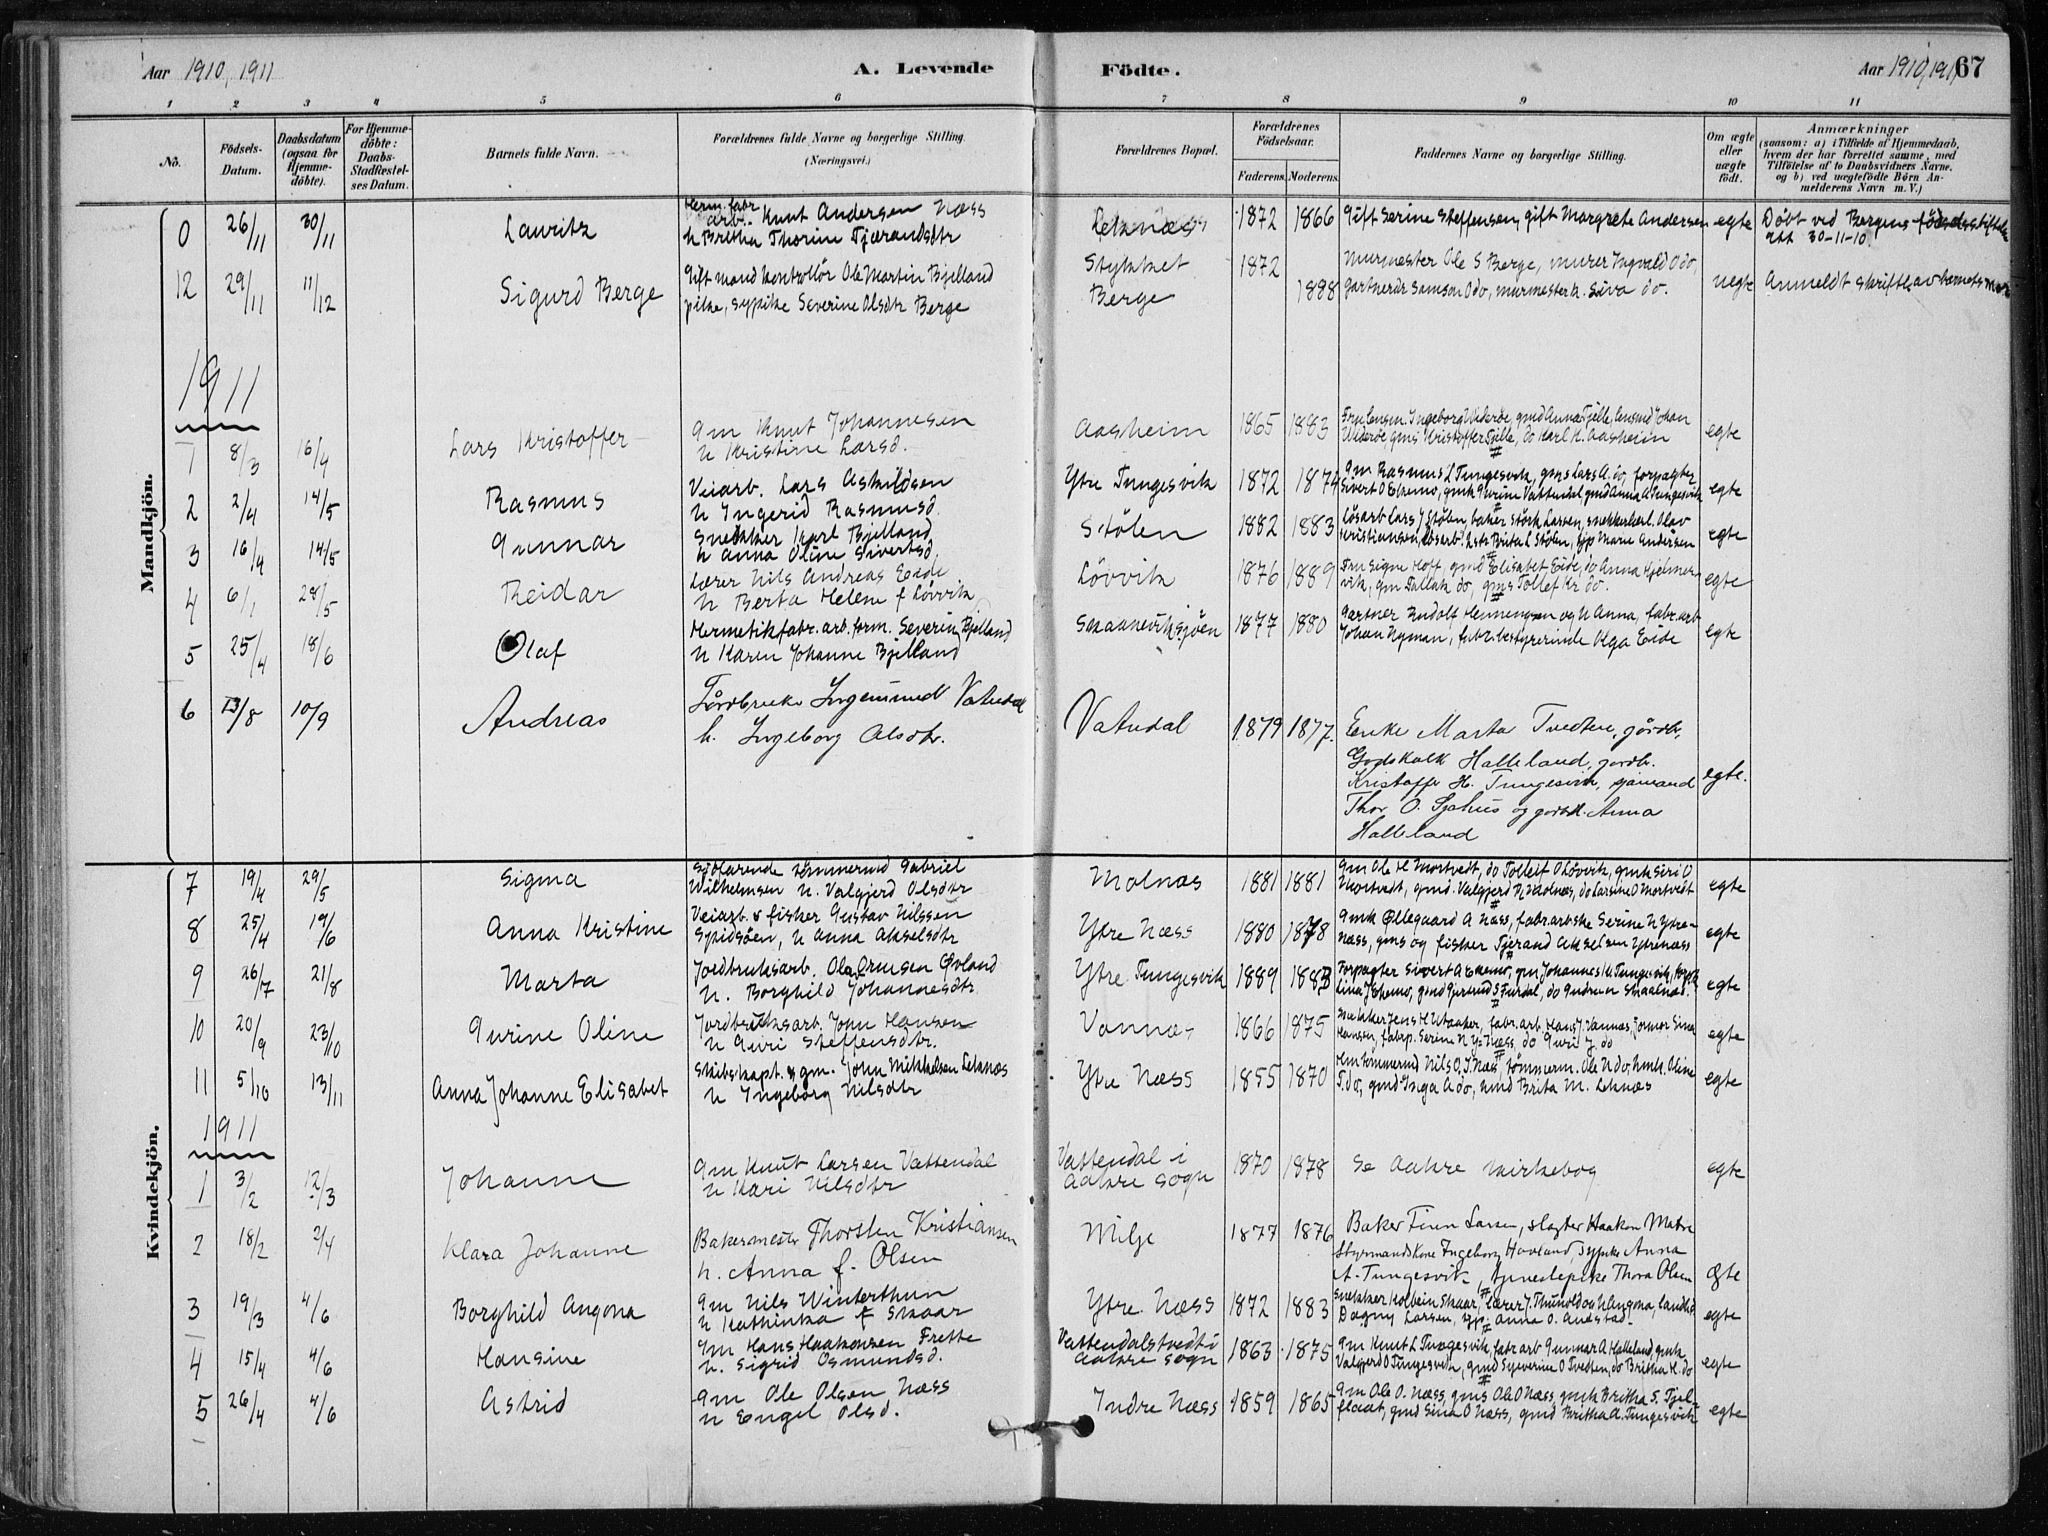 Aar 1910, 1911
A. Levende Födte.
Aar 1910, 1911 67
1 2 3 4 5 6 7 8 9 10 11
No.
Födsels-Datum.
Daabsdatum (ogsaa for Hjemme-döbte).
For Hjemme-döbte: Daabs-Stadfæstel-ses Datum.
Barnets fulde Navn.
Forældrenes fulde Navne og borgerlige Stilling. (Næringsvei.)
Forældrenes Bopæl.
Forældrenes Födselsaar.
Faderens. Moderens.
Faddernes Navne og borgerlige Stilling.
Om ægte eller uægte födt.
Anmærkninger (saasom: a) i Tilfælde af Hjemmedaab, hvem der har forrettet samme, med Tilföielse af to Daabsvidners Navne, og b) ved uægtefödte Börn An-melderens Navn m. V.)
Mandkjön.
0 26/11 30/11 Lauritz Herm. fabr arb. Knut Andersen Næss
h Bretha Thorine Tjærandsdtr Leknæs 1872 1866 gift Serine Steffensen, gift Margrete Andersen egte Döbt ved Bergens födselsstiftelse
30-11-10.
12 29/11 11/12 Sigurd Berge Gift mand kontrollör Ole Martin Bjelland Stykket 1872 Murmester Ole S Berge, murer Ingvald O do,
pike, sypike Severine Olsdtr Berge Berge 1898 gartner Samson O do, murmesterk. Siva do. uegte Anmeldt skriftl. av barnets mor
1911
1 8/3 16/4 Lars Kristoffer gm Knut Johannesen
h Kristine Larsd. Aasheim 1865 1883 Ingeborg Udderöe, gmd Anna Fjelle, Johan
Kristoffer Fjelle, do Karl K. Aasheim egte
2 2/4 14/5 Rasmus Veiarb. Lars Askildsen
h Ingerid Rasmusd. Ytre Tungesvik 1872 1874 gm Rasmus L Tungesvik, gms Lars A. do, forpagter
Sivert O Ekemo, gmk Gurine Vattendal gmd Anna A Tungesvik egte
3 16/4 14/5 Gunnar Snekker Karl Bjelland
h Anna Oline Sivertsd. Stölen 1882 1883 Lösarb Lars J Stölen, baker Störk Larsen, snekkerlærl. Olav
Kristiansen, Brita L Stölen, Marie Andersen egte
4 6/1 28/5 Reidar Lærer Nils Andreas Eide
h Berta Helene f Lövvik Lövvik 1876 1889 Fru Signe Hoff, gmd Elisabet Eide, do Anna Hjelmer-
vik, gm Tallak do, gms Tollef Kr do. egte
5 25/4 18/6 Olaf Hermetikfabr. arb. form. Severin Bjelland
h Karen Johanne Bjelland Skaaneviksjöen 1877 1880 Gartner Rudolf Henningsen og h Anna, fabr. arb
Johan Nyman, fabr. bestyrerinde Olga Eide egte
6 13/8 10/9 Andreas Ingemund Vatndal
h. Ingeborg Olsdtr. Vatndal 1879 1877. Enke Marta Tvedten, gårdb.
Godskalk Halleland, gardb.
Kristoffer H. Tungesvik, sjömand
Thor O. Sjohus og gardbr. Anna
Halleland egte.
Kvindekjön.
7 19/4 29/5 Sigma Sjöfarende tömmermd Gabriel
Wilhelmsen h. Valgjerd Olsdtr Molnæs 1881 1881 gm Ole H Mortvedt, do Tolleif O Lövvik, gmk Siri O
Mortvedt, gmd. Valgjerd N Molnæs, do Larsine O Mortvedt egte
8 25/4 19/6 Anna Kristine Veiarb. & fisker Gustav Nilssen
Spidsöen, h Anna Akselsdtr Ytre Næss 1880 1878 gmk Øllegaard A Næss, fabr.arbske Serine N Ytre-
næss, gms og fisker Tjerand Akselsen Ytrenæss egte
9 26/7 21/8 Marta Jordbruksarb. Ola Ormsen Øvland
h. Borghild Johannesdtr. Ytre Tungesvik 1889 1883 Forpagter Sivert A Ekemo, gm Johannes K Tungesvik,
Lina J Ekemo, gmd Gjertrud S Furdal, do Gudrun Skaalnæs. egte
10 20/9 23/10 Gurine Oline Jordbruksarb. John Hansen
h Guri Steffensdtr. Vannes 1866 1875 Snekker Jens H Utaaker, fabr. arb. Hans J. Vannes, Sina
Hansen, fabrp. Serine N Y. Næss, do Guri J. do egte
11 5/10 13/11 Anna Johanne Elisabet Skibskapt. & gm. John Mikkelsen Leknæs
h Ingeborg Nilsdtr Ytre Næss 1855 1870 Nils O. I. Næss, tömmerm. Ole N do, Oline
T. do, gmd Inga A do, Brita M. Leknæs egte
1911
1 3/2 12/3 Johanne gm Knut Larsen Vattendal
h Kari Nilsdtr Vattendal i
Aakre sogn 1870 1878 Se Aakre kirkebog egte
2 18/2 2/4 Klara Johanne Bakermester Thorsten Kristiansen
h. Anna f. Olsen Milje 1877 1876 Baker Finn Larsen, slagter Haakon Matre
Styrmandskone Ingeborg Havland, sypike Anna
A. Tungesvik, tjenestepike Thora Olsen egte
3 19/3 4/6 Borghild Angona gm Nils Winterthun
h Kathinka f Skaar Ytre Næss 1872 1883 Snekker Kolbein Skaar, lærer J. Thunold og h Angona,
Dagny Larsen, Anna O. Andstad egte
4 15/4 4/6 Hansine gm Hans Haakonsen Frette
h. Sigrid Osmundsd. Vattendalstvedt i
Aakre sogn 1863 1875 gm Knut L Tungesvik, fabr arb Gunnar A Halleland, gmk
Valgjerd O Tungesvik, gmd Syverine O Tvedten, do Britha K. do egte
5 26/4 4/6 Astrid gm Ole Olsen Næss
h Engel Olsd. Indre Næss 1859 1865 gm Ole O. Næss, gms Ole O Næss, gmk Britha S. Fjel-
flaat, gmd Sina O Næss, gmd Britha A. Tungesvik egte